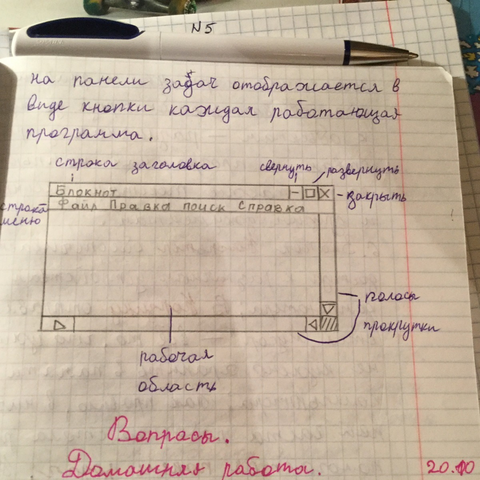 N5
на панели задач отображается в
виде кнопки каждая работающая
программа.
строка заголовка свернуть развернуть
Блокнот закрыть
строка меню Файл Правка поиск Справка
полосы
прокрутки
рабочая
область
Вопросы.
Домашняя работа. 20.10